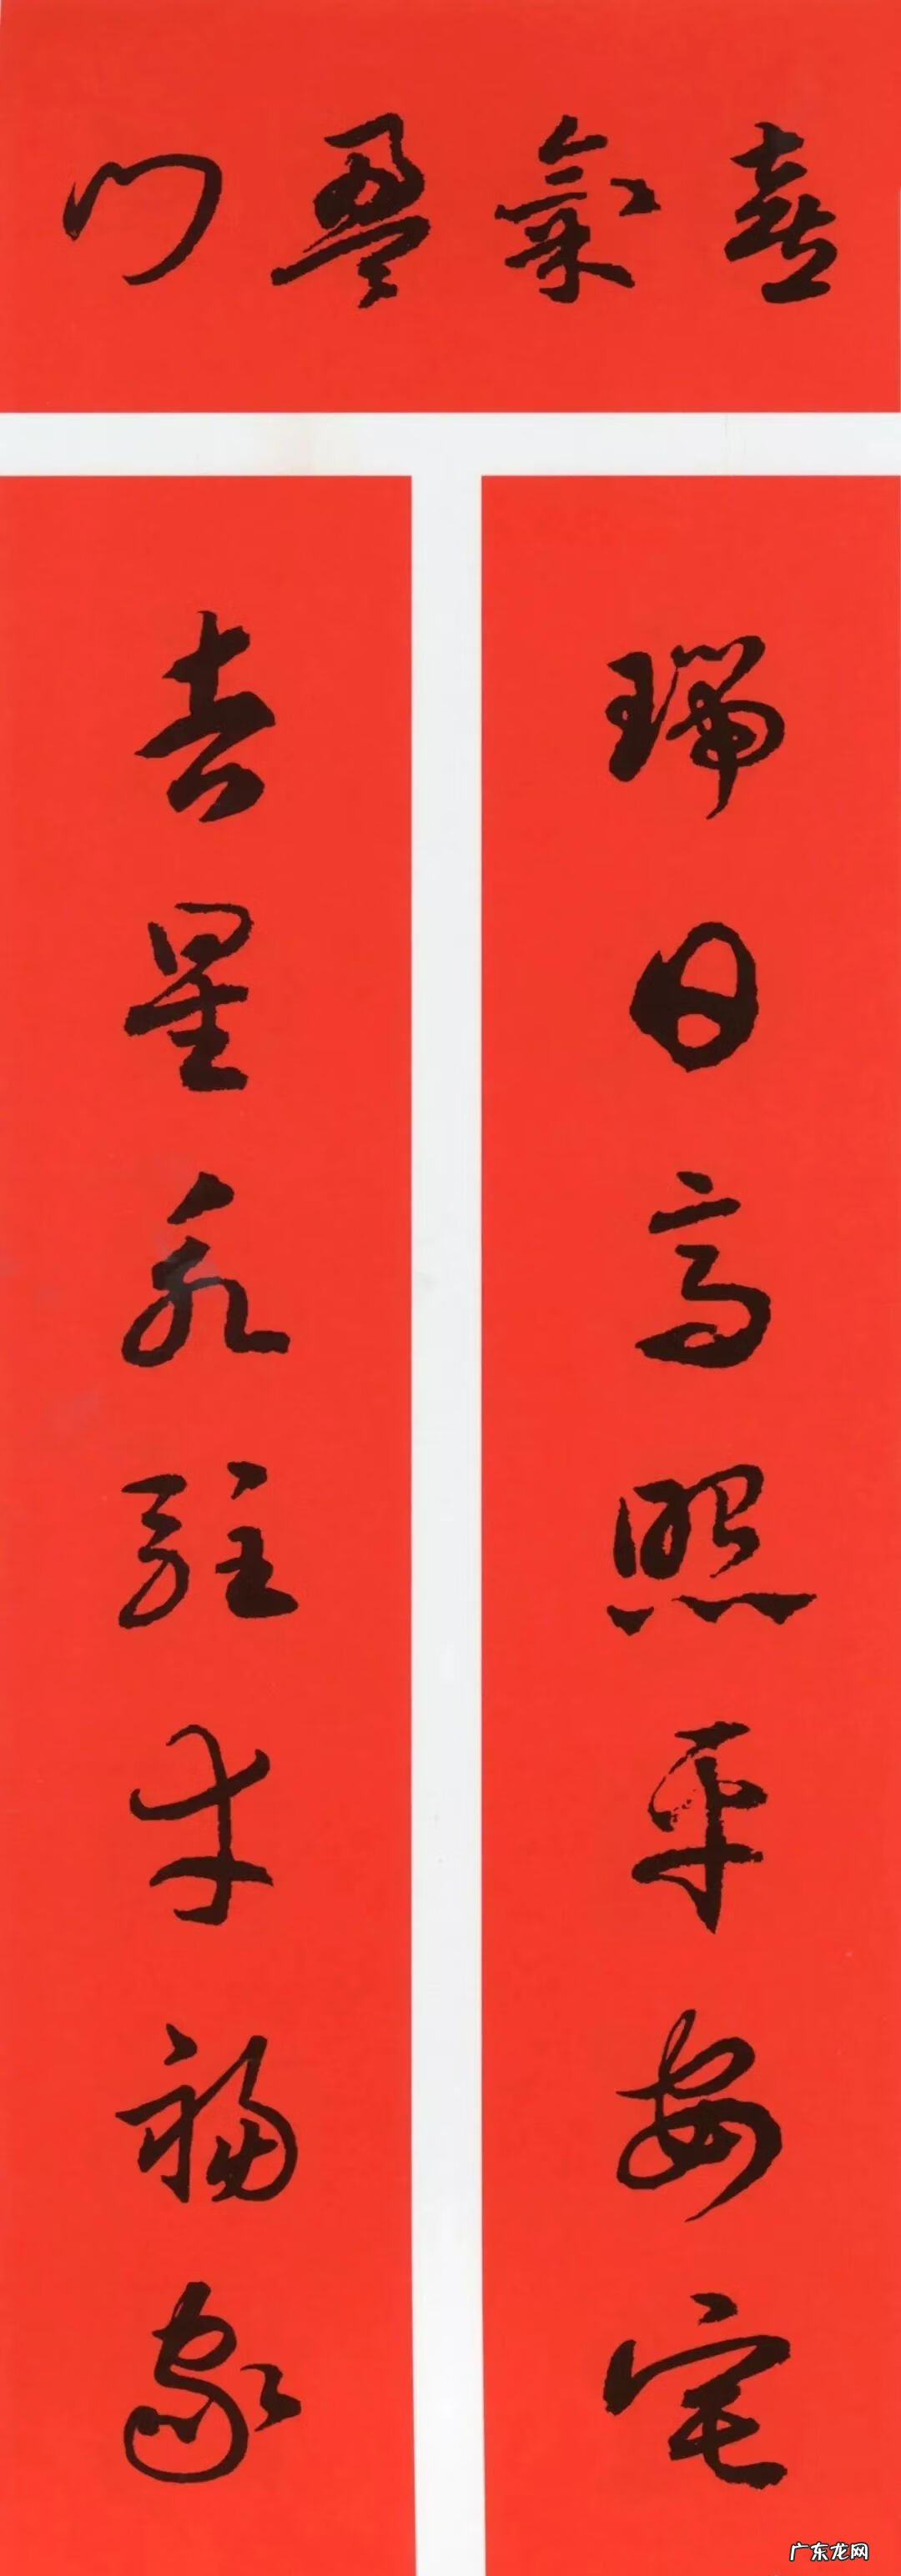 喜氣盈门
瑞日高照平安宅
吉星永駐幸福家
广东龙网